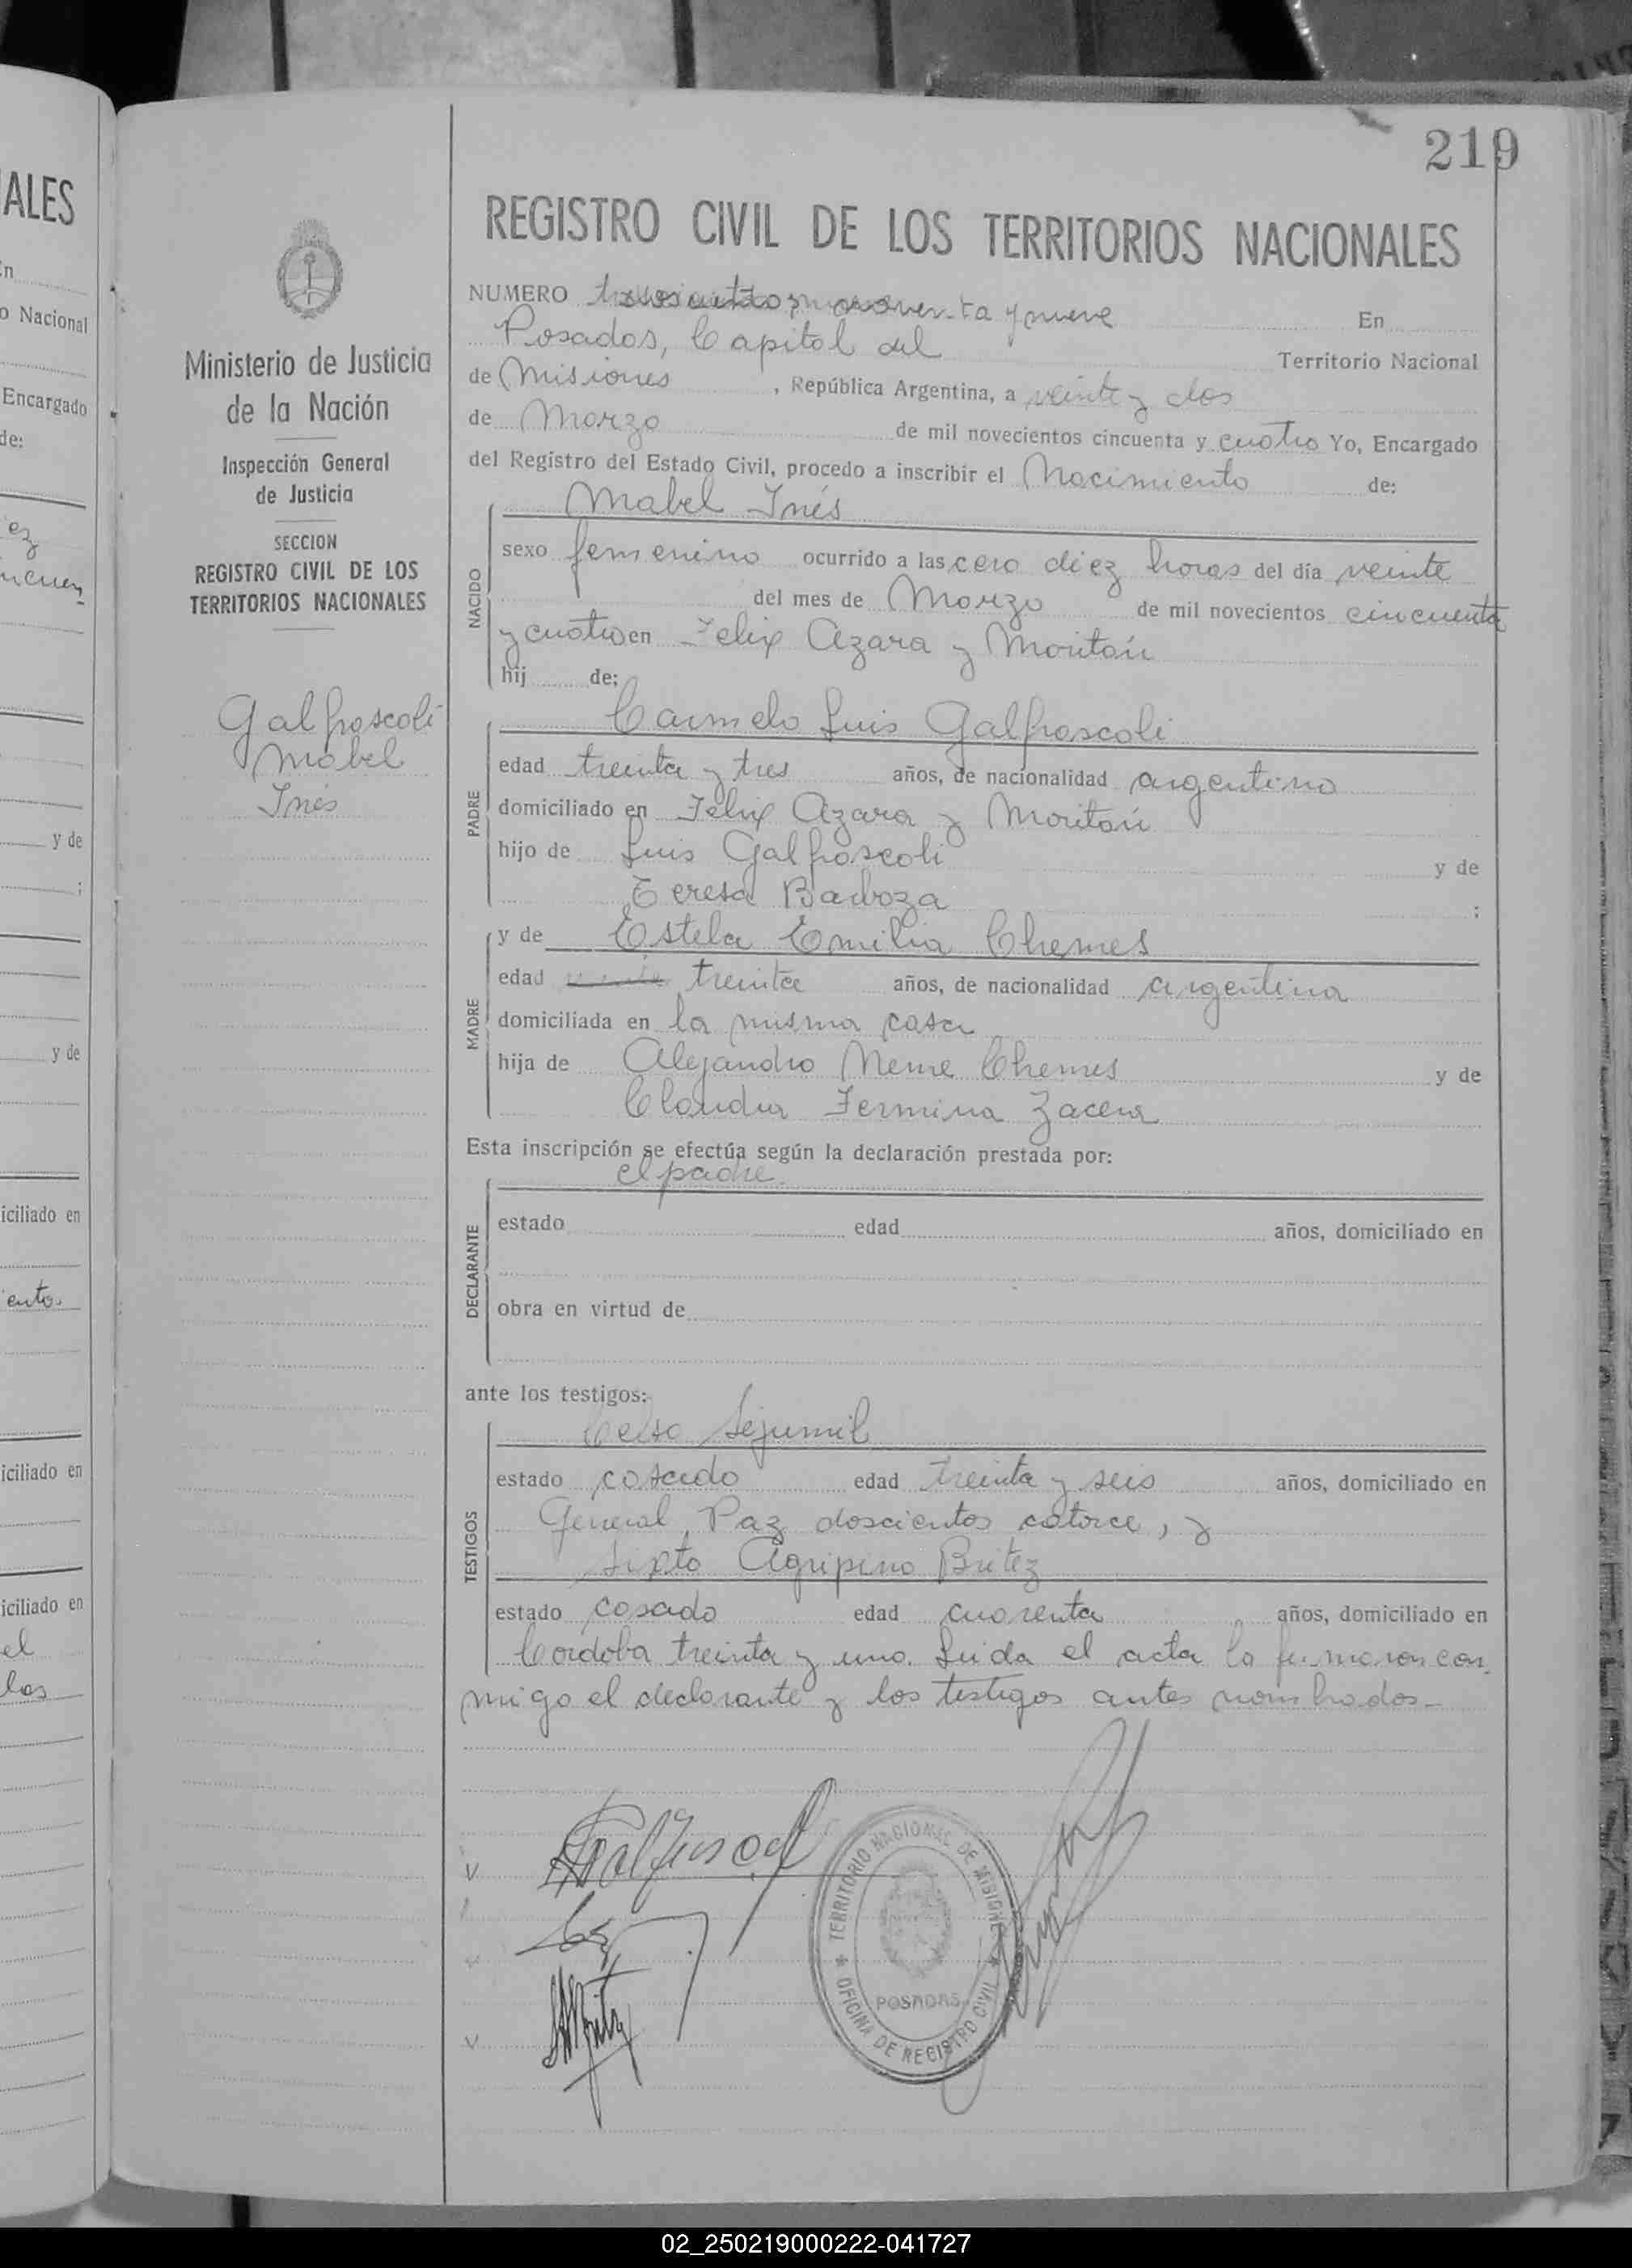 219
REGISTRO CIVIL DE LOS TERRITORIOS NACIONALES
NUMERO noventa y nueve En
Posadas, Capital del Territorio Nacional
de Misiones, República Argentina, a veinte y dos
de Marzo de mil novecientos cincuenta y cuatro Yo, Encargado
del Registro del Estado Civil, procedo a inscribir el Nacimiento de:
Mabel Inés
NACIDO
sexo femenino ocurrido a las cero diez horas del día veinte
del mes de Marzo de mil novecientos cincuenta
y cuatro en Felix Azara y
hij de:
PADRE
Carmelo Luis Galfrascoli
edad treinta y tres años, de nacionalidad argentino
domiciliado en Felix Azara y
hijo de Luis Galfrascoli y de
Teresa Barboza ;
MADRE
y de Estela Emilia Chemes
edad treinta años, de nacionalidad argentina
domiciliada en la misma casa
hija de Alejandro Neme Chemes y de
Claudia Fermina Zacera
Esta inscripción se efectúa según la declaración prestada por:
el padre.
DECLARANTE
estado edad años, domiciliado en
obra en virtud de
ante los testigos:
TESTIGOS
Celso Sejumil
estado casado edad treinta y seis años, domiciliado en
General Paz doscientos catorce, y
Sixto Agripino Britez
estado casado edad cuarenta años, domiciliado en
Cordoba treinta y uno. Leida el acta la firmaron con
migo el declarante y los testigos antes nombrados-
TERRITORIO NACIONAL DE MISIONES
POSADAS
OFICINA DE REGISTRO CIVIL
Ministerio de Justicia
de la Nación
Inspección General
de Justicia
SECCION
REGISTRO CIVIL DE LOS
TERRITORIOS NACIONALES
Galfrascoli
Mabel
Inés
ALES
En
o Nacional
Encargado
de:
ez
y de
;
y de
iciliado en
ento.
iciliado en
iciliado en
el
los
02_250219000222-041727